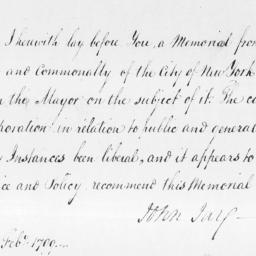 I herewith lay before You, a Memorial from
and Commonalty of the City of New York
the Mayor on the subject of it. The co
poration in relation to public and general
Instances been liberal, and it appears to
ice and Policy, recommend this Memorial
John Jay
Feby. 1799